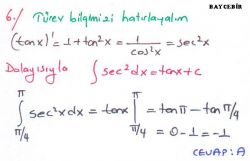 BAYCEBİR
6./ Türev bilgimizi hatırlayalım
(tanx)' = 1 + tan²x = 1/cos²x = sec²x
Dolayısıyla ∫ sec²dx = tanx + c
∫_{π/4}^{π} sec²x dx = tanx |_{π/4}^{π} = tanπ - tanπ/4
= 0 - 1 = -1
CEVAP: A